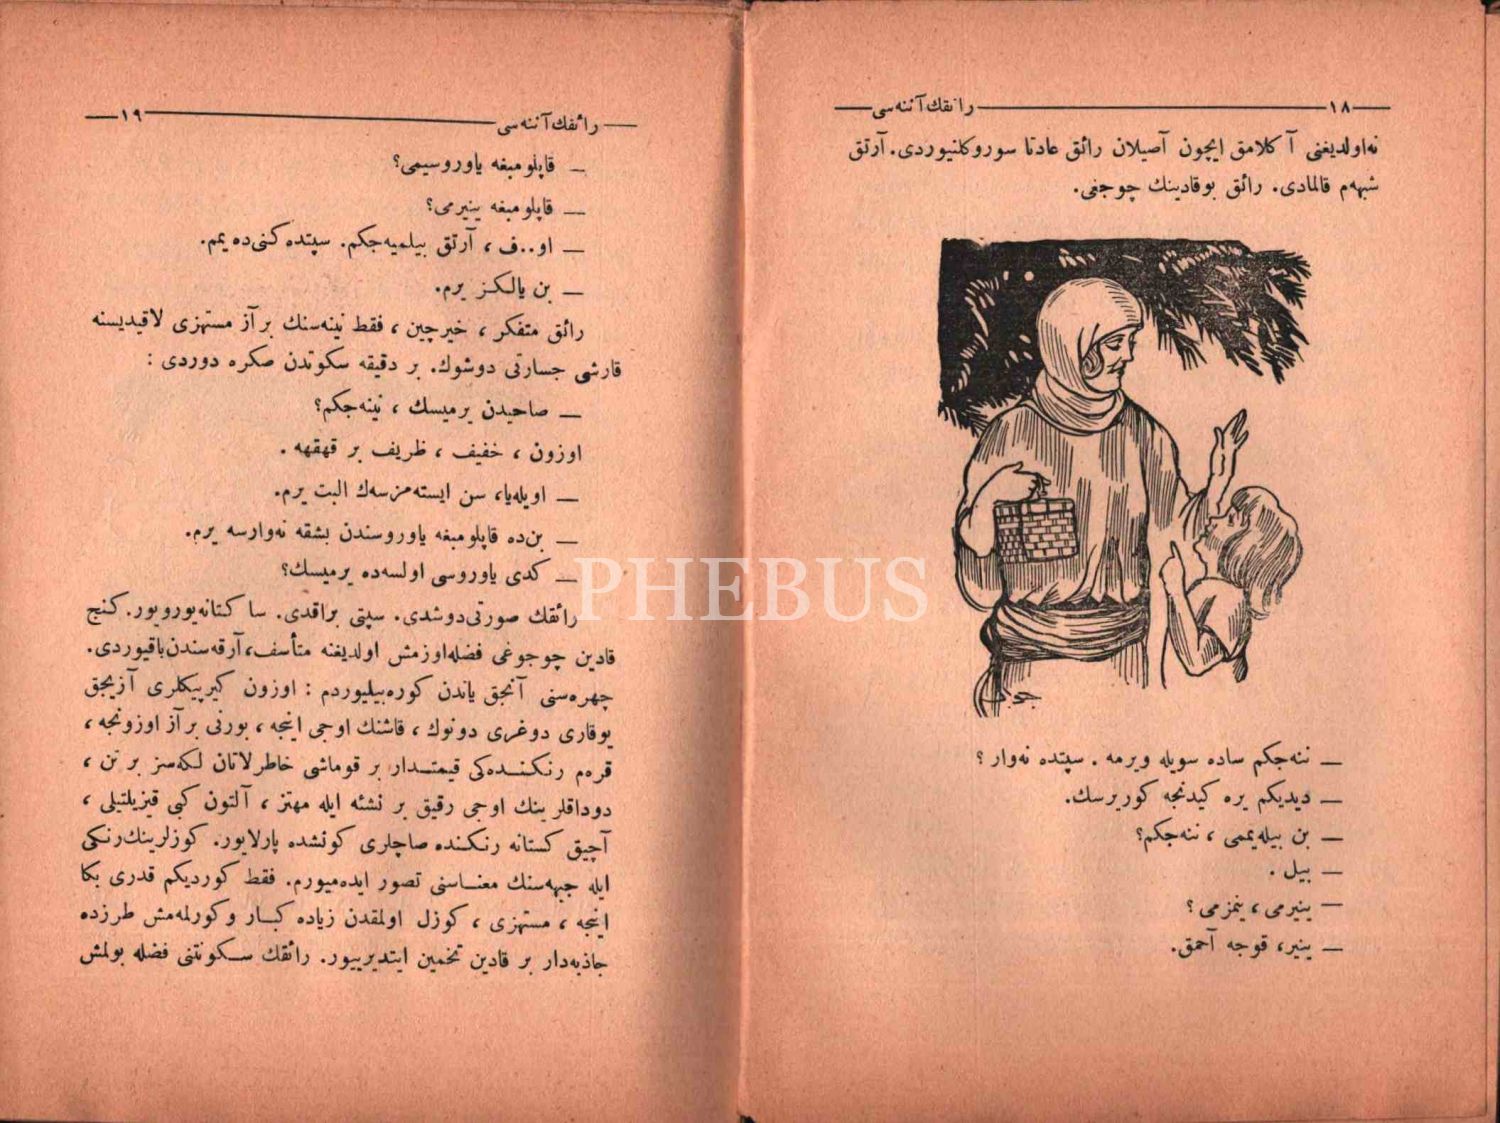 ١٨ رائقك آننه‌سی
نه‌اولدیغنی آكلامق ایچون آصیلان رائق عادتا سوروكلنیوردی. آرتق
شبهه‌م قالمادی. رائق بوقادینك چوجغی.
— ننه‌جكم ساده سویله ویرمه . سپتده نه‌وار ؟
— دیدیكم یره كیدنجه كوریرسك.
— بن بیله‌یممی ، ننه‌جكم؟
— بیل .
— ینیرمی ، ینمزمی ؟
— ینیر، قوجه آحمق.
رائقك آننه‌سی ١٩
— قاپلومبغه یاوروسیمی؟
— قاپلومبغه ینیرمی؟
— او..ف ، آرتق بیلمیه‌جكم. سپتده كنی‌ده یمم.
— بن یالكز یرم.
رائق متفكر ، خیرچین ، فقط نینه‌سنك بر آز مستهزی لاقیدیسنه
قارشی جسارتی دوشوك. بر دقیقه سكوتدن صكره دوردی :
— صاحیدن یرمیسك ، نینه‌جكم؟
اوزون ، خفیف ، ظریف بر قهقهه .
— اویله‌یا، سن ایسته‌مزسه‌ك البت یرم.
— بن‌ده قاپلومبغه یاوروسندن بشقه نه‌وارسه یرم.
— كدی یاوروسی اولسه‌ده یرمیسك؟
رائقك صورتی‌دوشدی. سپتی براقدی. ساكتانه‌یورویور. كنج
قادین چوجوغی فضله‌اوزمش اولدیغنه متأسف، آرقه‌سندن‌باقیوردی.
چهره‌سنی آنجق یاندن كوره‌بیلیوردم : اوزون كیرپیكلری آزیجق
یوقاری دوغری دونوك ، قاشنك اوجی اینجه ، بورنی بر آز اوزونجه ،
قره‌م رنكنده‌كی قیمتدار بر قوماشی خاطرلاتان لكه‌سز بر تن ،
دوداقلرینك اوجی رقیق بر نشئه ایله مهتز ، آلتون كبی قیزیلتیلی ،
آچیق كستانه رنكنده صاچلری كونشده پارلایور. كوزلرینك‌رنكی
ایله جبهه‌سنك معناسنی تصور ایده‌میورم. فقط كوردیكم قدری بكا
اینجه ، مستهزی ، كوزل اولمقدن زیاده كبار و كورلمه‌مش طرزده
جاذبه‌دار بر قادین تخمین ایتدیرییور. رائقك سكوتنی فضله بولمش
PHEBUS